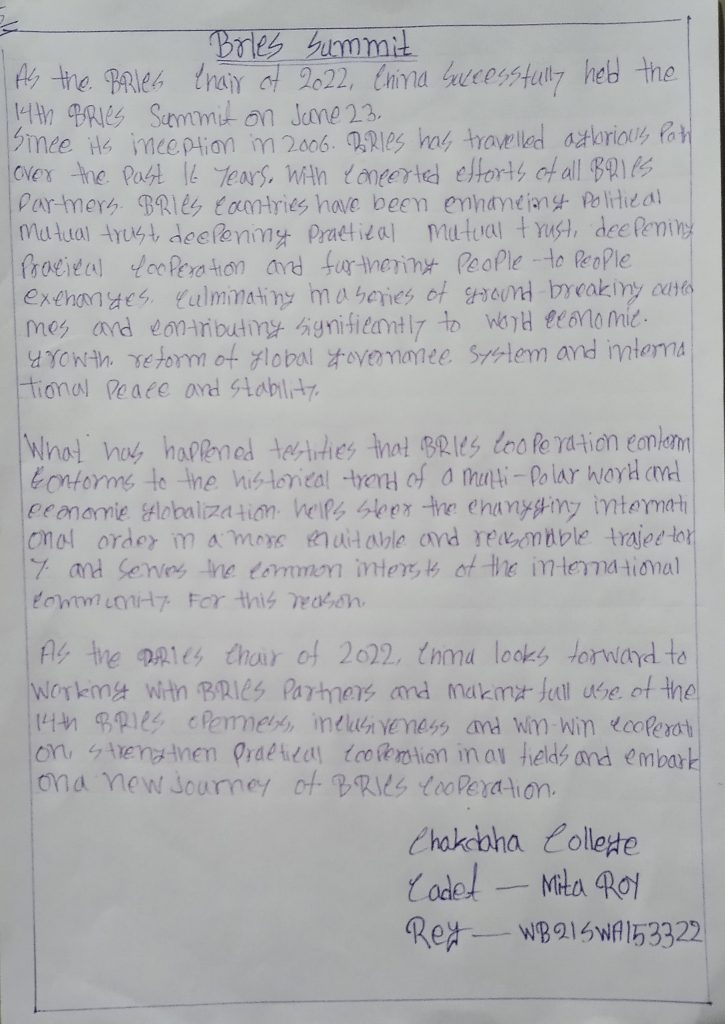 BRICS Summit
As the BRICS Chair of 2022, China Successfully held the
14th BRICS Summit on June 23.
Since its inception in 2006. BRICS has travelled a glorious Path
over the Past 16 Years. With Concerted efforts of all BRICS
Partners. BRICS Countries have been enhancing Political
Mutual trust, deepening Practical Mutual trust, deepening
Pracical Cooperation and furthering People-to People
exchanges. Culminating in a series of ground-breaking outco
mes and contributing significantly to world economic.
growth. reform of global governance system and interna
tional Peace and stability.
What has happened testifies that BRICS Cooperation conform
Conforms to the historical trend of a multi-Polar world and
economic globalization. helps steer the changging internati
onal order in a more equitable and reasonable trajector
y. and serves the common intersts of the international
Community For this reason.
As the BRICS Chair of 2022, China looks forward to
working with BRICS Partners and making full use of the
14th BRICS openness, inclusiveness and win-win cooperati
on, strengthen Practical Cooperation in all fields and embark
on a new Journey of BRICS Cooperation.
Chakdaha College
Cadet — Mita ROY
Reg — WB21SWA153322